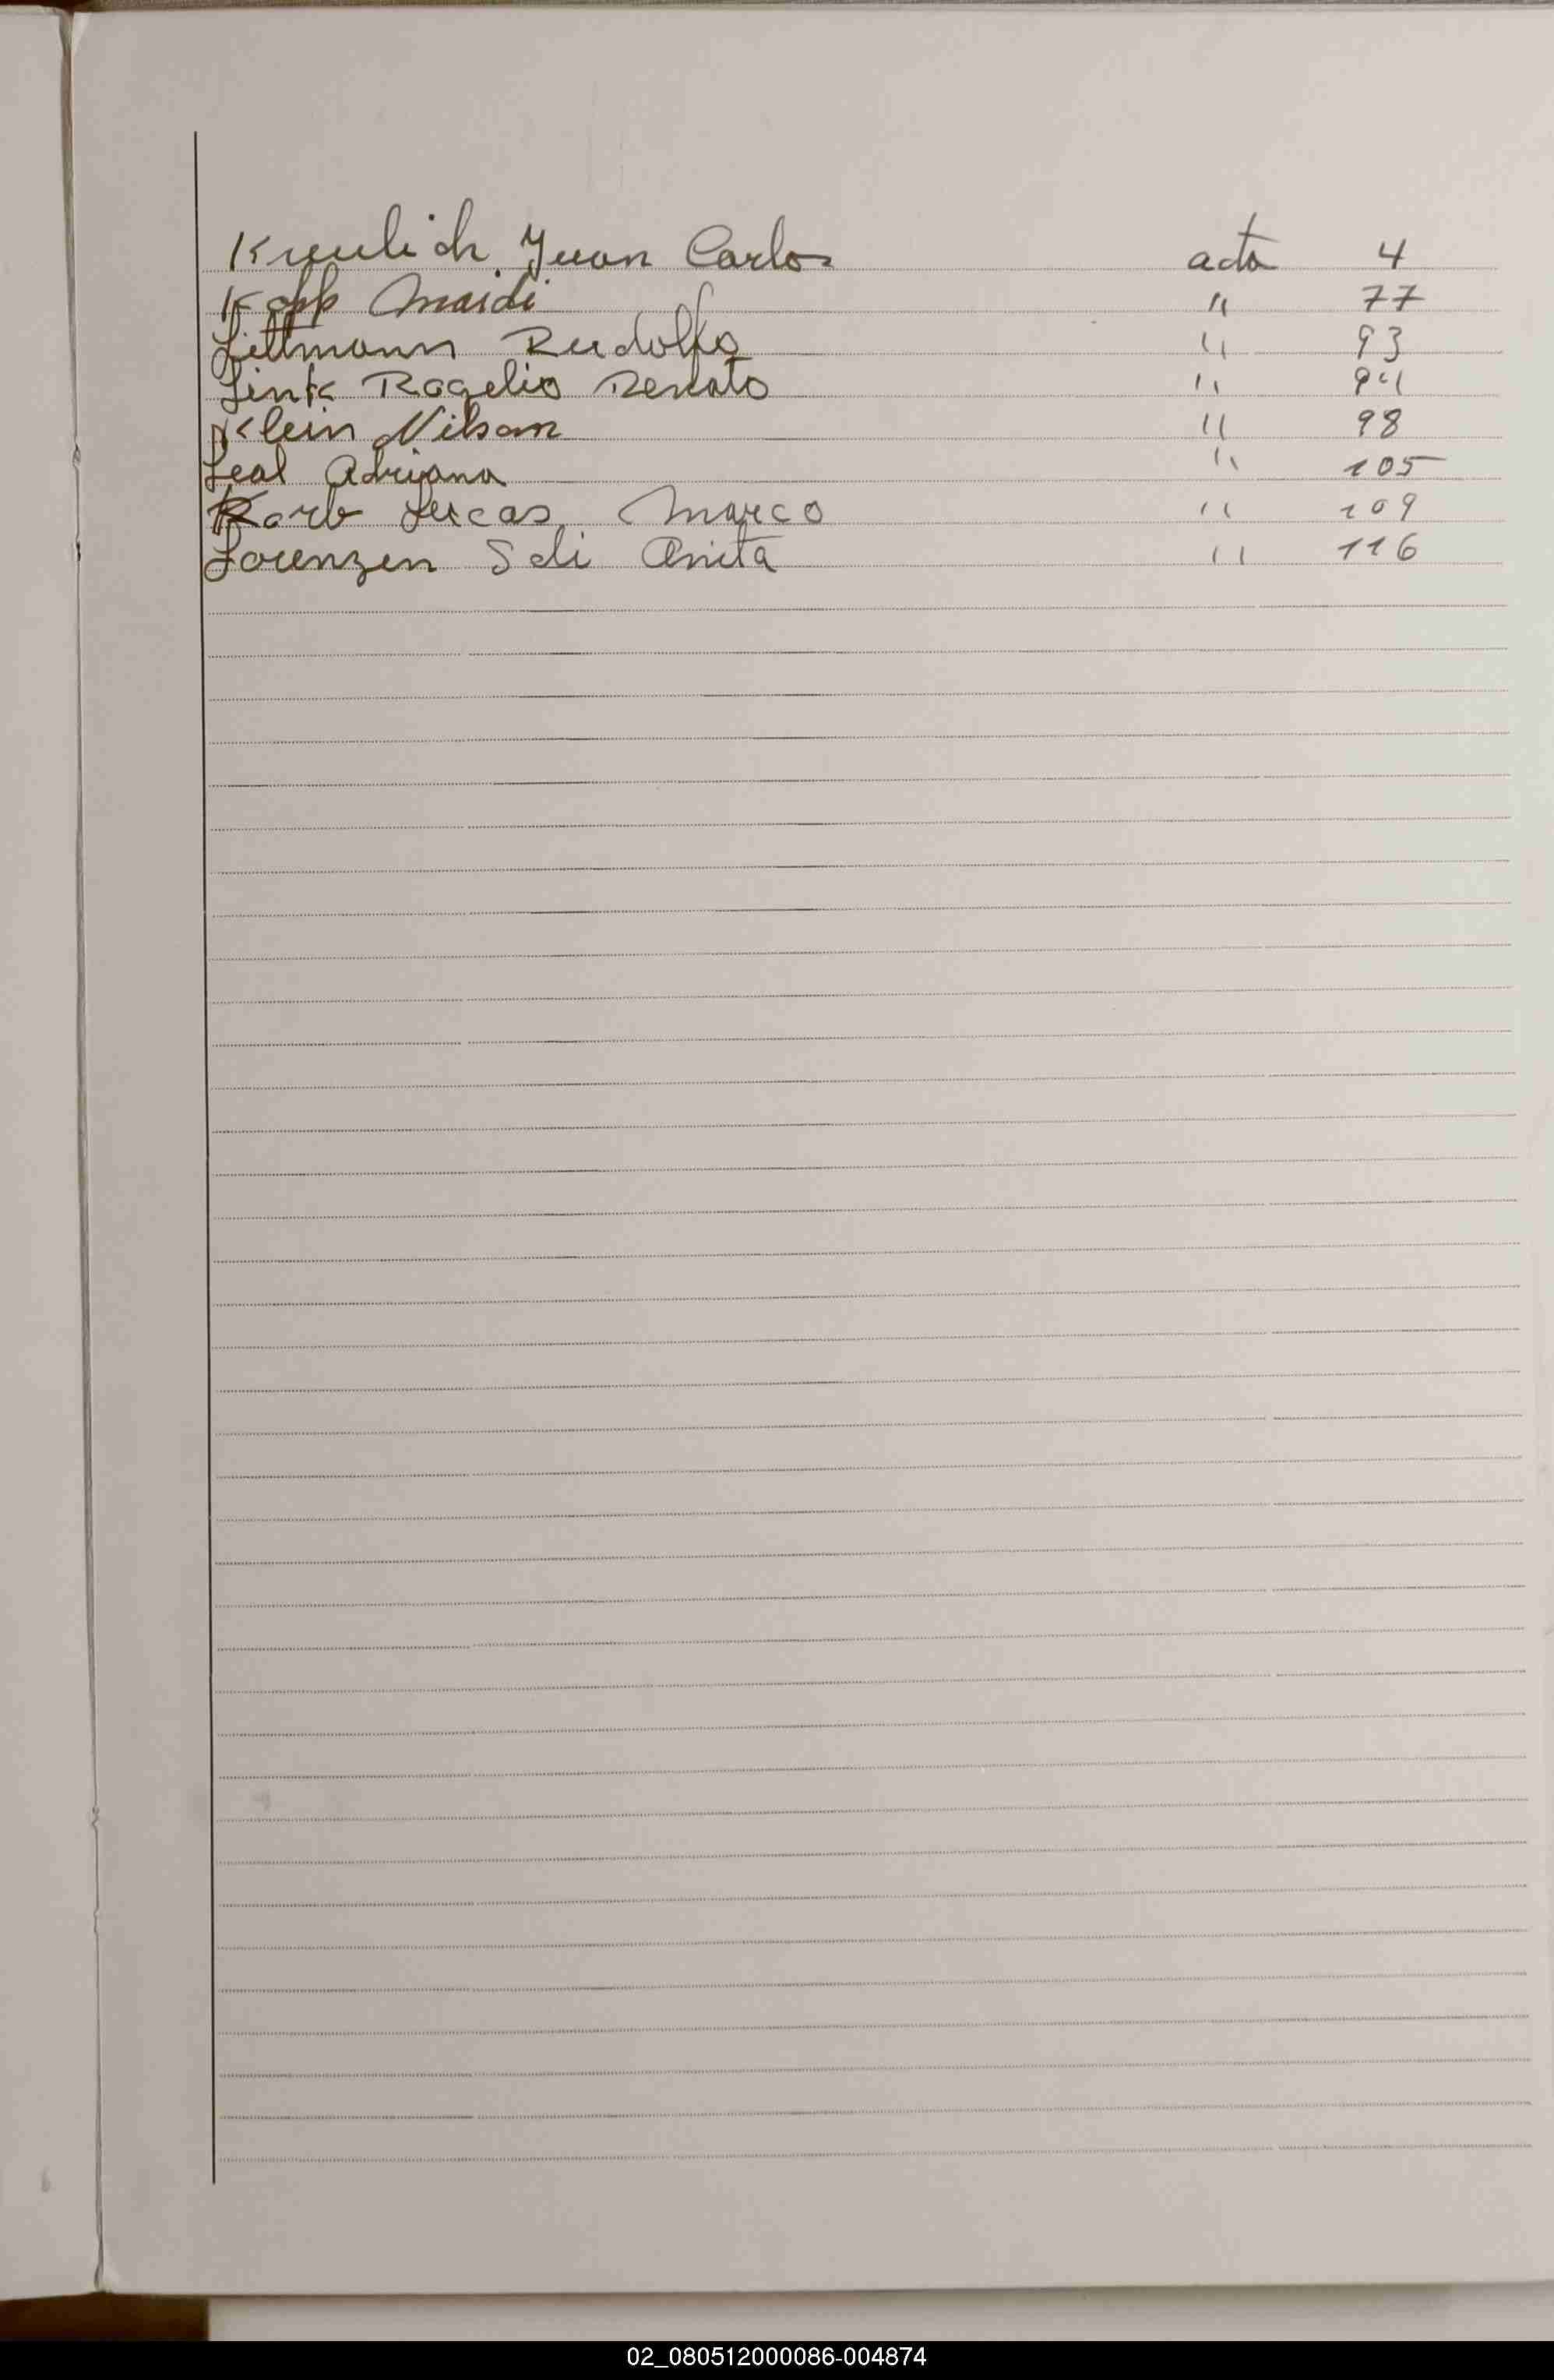 Kreulich Juan Carlos acta 4
Kopp Maidi " 77
Littmann Rudolfo " 93
Link Rogelio Renato " 94
Klein Nilson " 98
Leal Adriana " 105
Karb Lucas Marco " 109
Lorenzen Seli Anita " 116
02_080512000086-004874